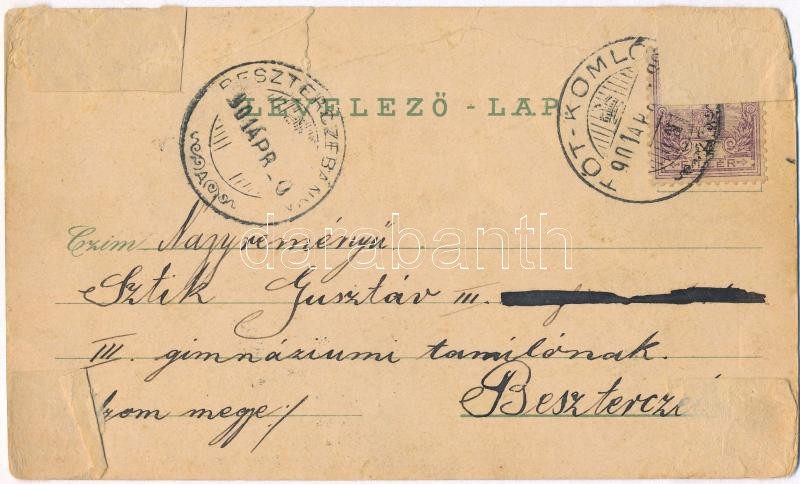 BESZTERCZEBANYA
901 APR
LEVELEZŐ-LAP
TÓT-KOMLÓ
901 APR
Czim Nagyreményü
Sztik Gusztáv III.
III. gimnáziumi tanulónak.
megye:/ Beszterczeb
darabanth